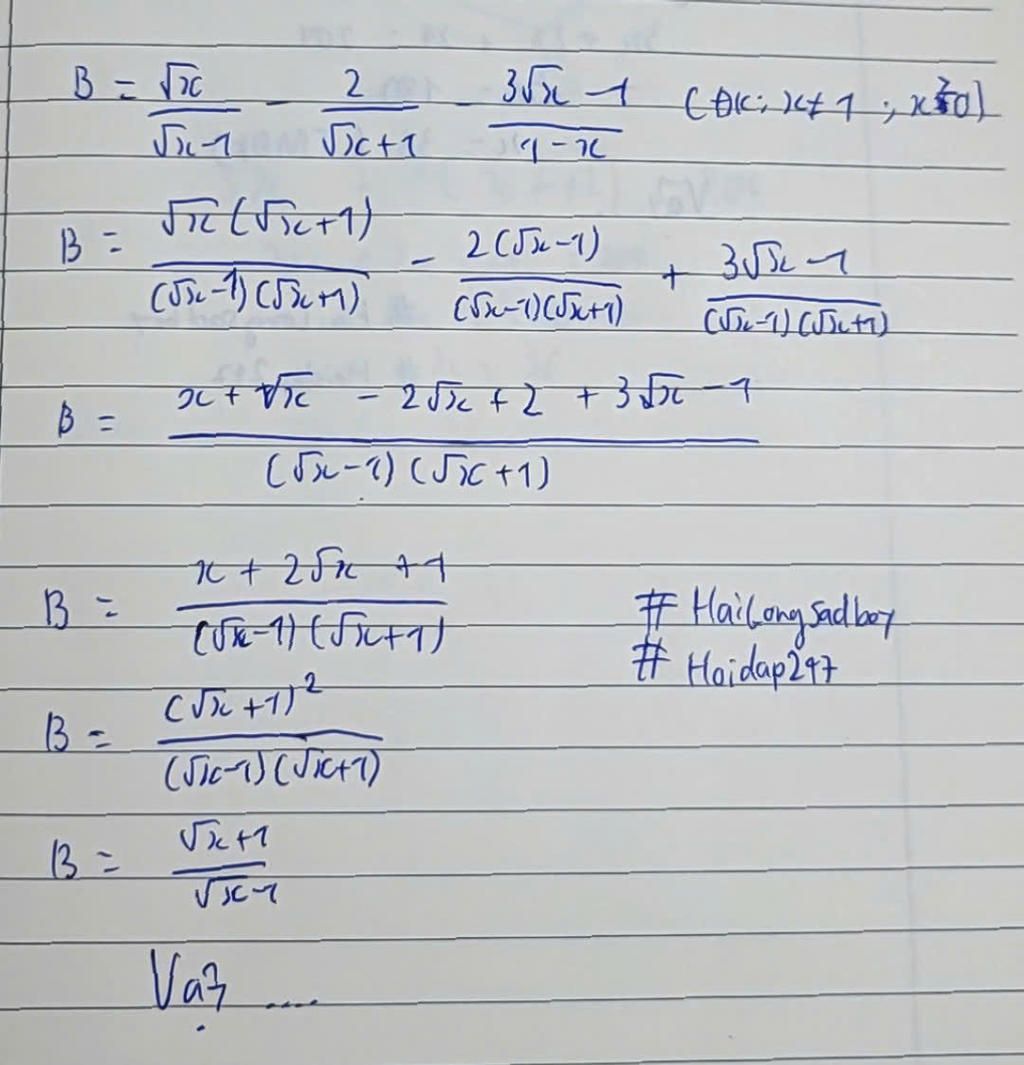 B = √x/(√x-1) - 2/(√x+1) - (3√x-1)/(1-x) (đk: x≠1; x≥0)
B = √x(√x+1)/((√x-1)(√x+1)) - 2(√x-1)/((√x-1)(√x+1)) + (3√x-1)/((√x-1)(√x+1))
B = (x+√x - 2√x+2 +3√x-1)/((√x-1)(√x+1))
B = (x+2√x+1)/((√x-1)(√x+1))
# HaiLongsadboy
# Hoidap247
B = (√x+1)²/((√x-1)(√x+1))
B = (√x+1)/(√x-1)
Vậy ....